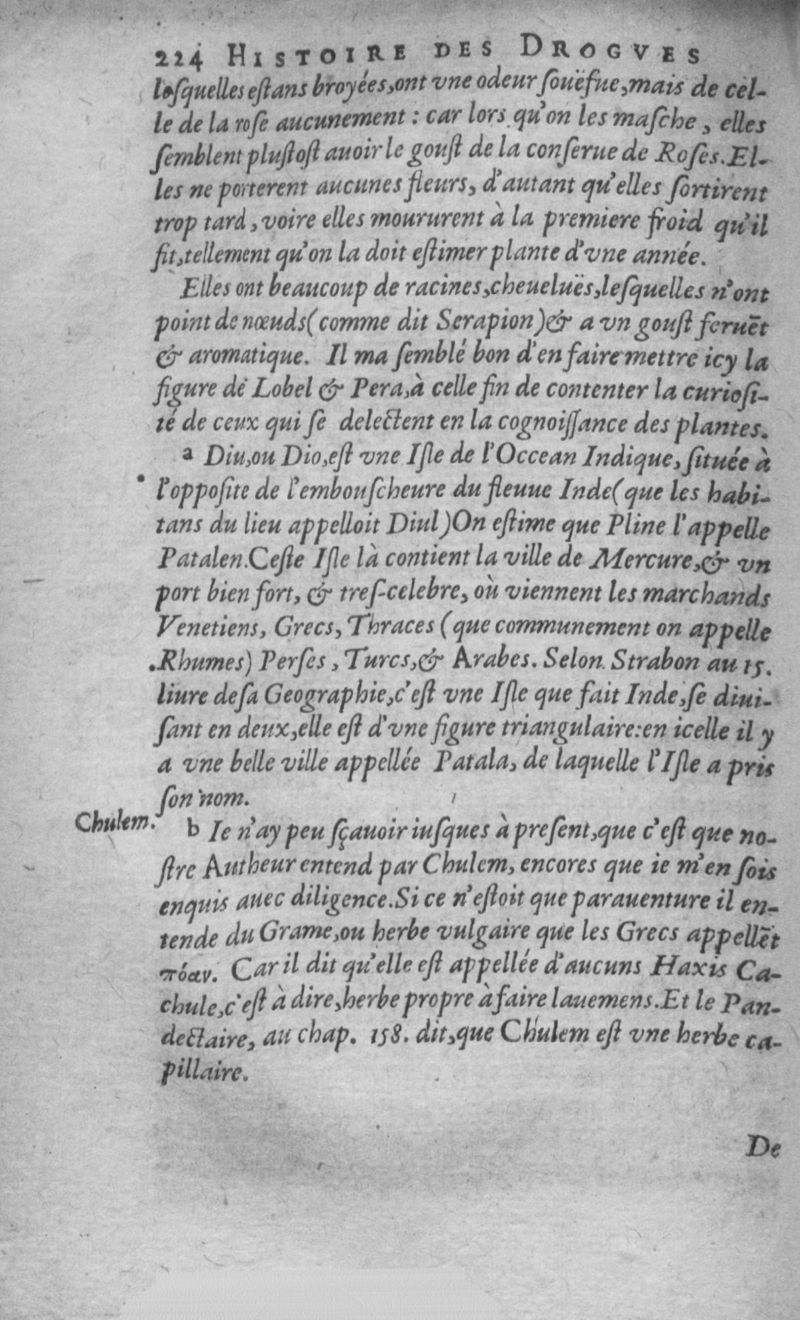 224 HISTOIRE DES DROGVES
lesquelles eſtans broyées,ont vne odeur ſouëfue,mais de cel-
le de la roſe aucunement : car lors qu'on les maſche , elles
ſemblent pluſtoſt auoir le gouſt de la conſerue de Roſes.El-
les ne porterent aucunes fleurs, d'autant qu'elles ſortirent
trop tard , voire elles moururent à la premiere froid qu'il
fit,tellement qu'on la doit eſtimer plante d'vne année.
Elles ont beaucoup de racines,cheueluës,leſquelles n'ont
point de nœuds(comme dit Serapion)& a vn gouſt feruẽt
& aromatique. Il ma ſemblé bon d'en faire mettre icy la
figure de Lobel & Pera,à celle fin de contenter la curioſi-
té de ceux qui ſe delectent en la cognoiſſance des plantes.
a Diu,ou Dio,eſt vne Iſle de l'Occean Indique, ſituée à
l'oppoſite de l'embouſcheure du fleuue Inde(que les habi-
tans du lieu appelloit Diul)On eſtime que Pline l'appelle
Patalen.Ceſte Iſle là contient la ville de Mercure,& vn
port bien fort, & treſ-celebre, où viennent les marchands
Venetiens, Grecs, Thraces (que communement on appelle
Rhumes) Perſes , Turcs,& Arabes. Selon Strabon au 15.
liure de ſa Geographie,c'eſt vne Iſle que fait Inde,ſe diui-
ſant en deux,elle eſt d'vne figure triangulaire:en icelle il y
a vne belle ville appellée Patala, de laquelle l'Iſle a pris
ſon nom.
Chulem.
b Ie n'ay peu ſçauoir iuſques à preſent,que c'eſt que no-
ſtre Autheur entend par Chulem, encores que ie m'en ſois
enquis auec diligence.Si ce n'eſtoit que parauenture il en-
tende du Grame,ou herbe vulgaire que les Grecs appellẽt
πόαν. Car il dit qu'elle eſt appellée d'aucuns Haxis Ca-
chule,c'eſt à dire,herbe propre à faire lauemens.Et le Pan-
dectaire, au chap. 158. dit,que Chulem eſt vne herbe ca-
pillaire.
De